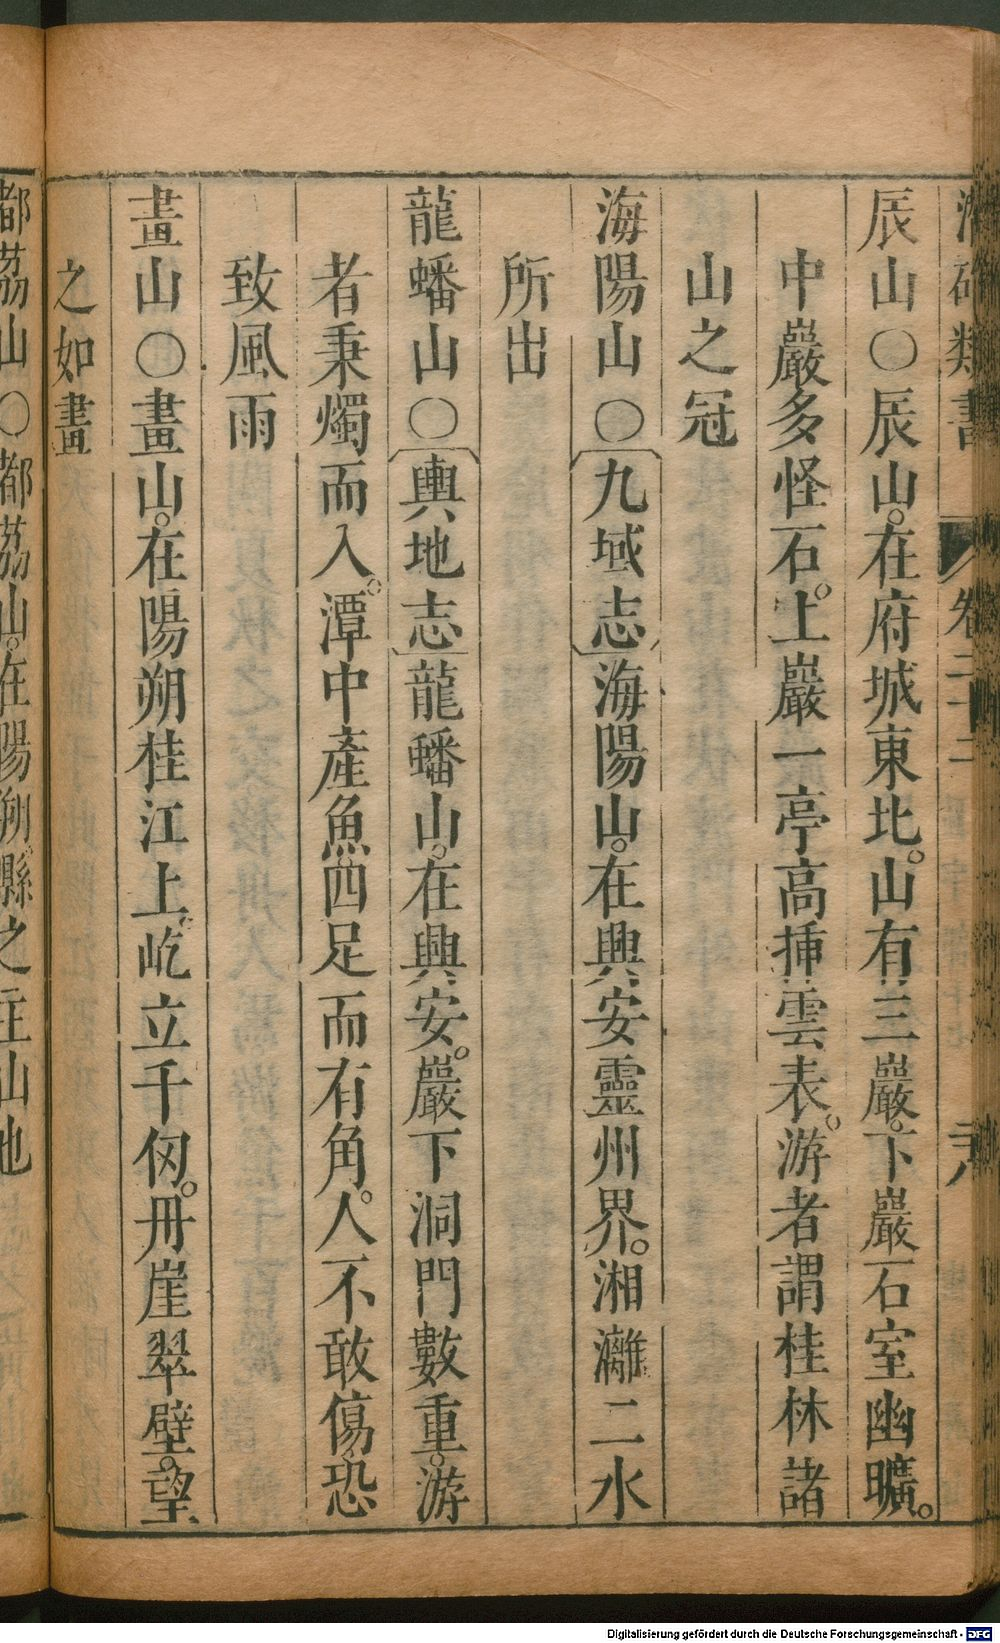 類書 卷二十二
辰山○辰山。在府城東北。山有三巖。下巖石室幽曠。
中巖多怪石。上巖一亭高揷雲表。游者謂桂林諸
山之冠
海陽山○〔九域志〕海陽山。在興安靈州界。湘灕二水
所出
龍蟠山○〔輿地志〕龍蟠山。在興安。巖下洞門數重。游
者秉燭而入。潭中產魚。四足而有角。人不敢傷。恐
致風雨
畫山○畫山。在陽朔桂江上。屹立千仭。丹崖翠壁。望
之如畫
都茘山○都茘山。在陽朔縣之主山也
Digitalisierung gefördert durch die Deutsche Forschungsgemeinschaft - DFG